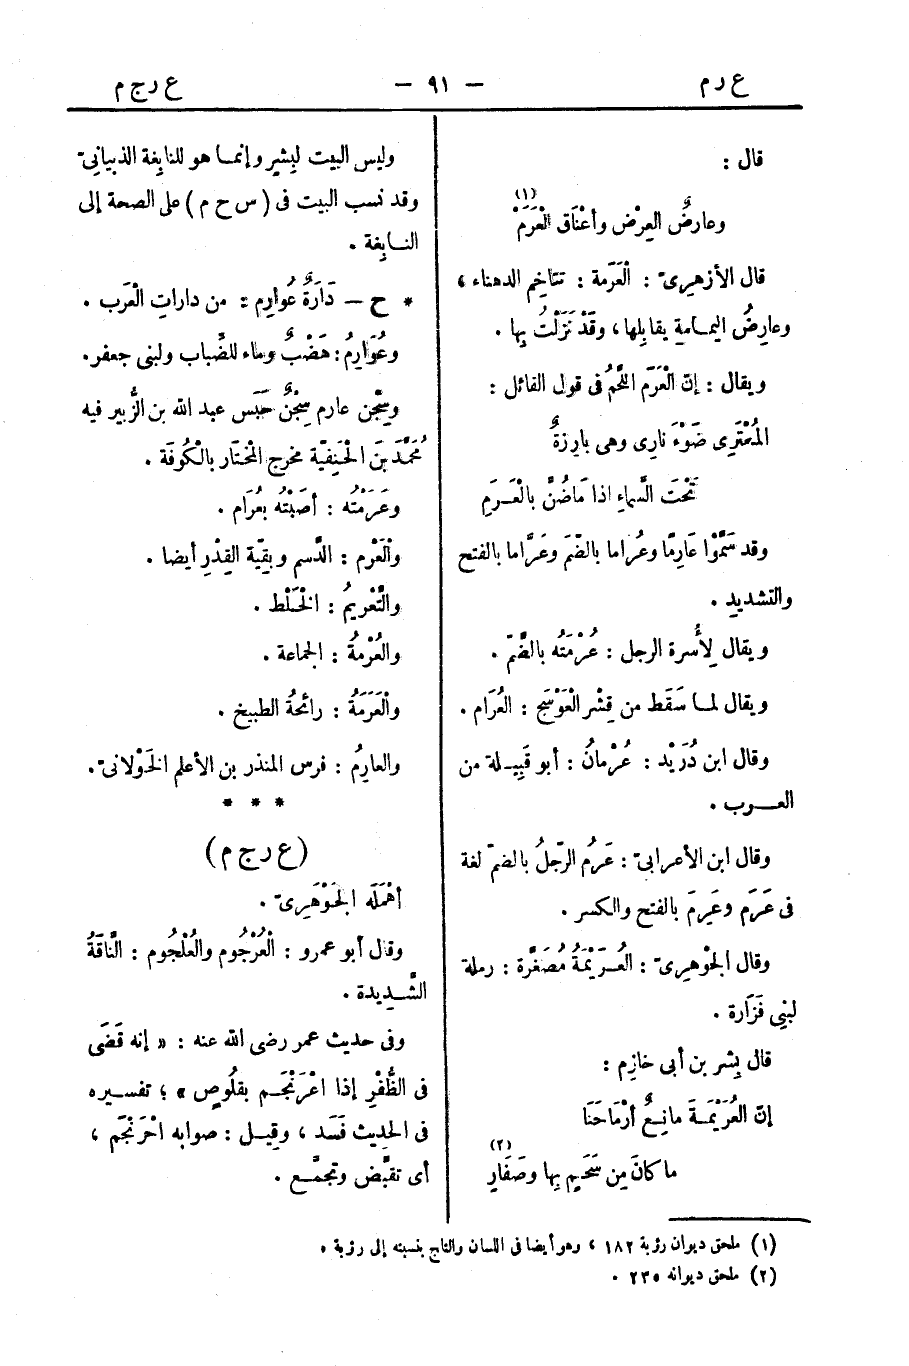 ع ر م — ٩١ — ع ر ج م
قال :
وعارضُ العِرْض وأعْناق الْعَرَمْ (١)
قال الأزهرىّ : الْعَرَمة : تتاخِم الدهناء ،
وعارِضُ اليمـامة يقابلها ، وقَدْ نَزَلْتُ بِها .
ويقال : إنّ الْعَرَم اللَّحْمُ فى قول القائل :
المُمْتَرِى ضَوْءَ نارِى وهى بارِزةٌ
تَحْتَ السَّماءِ اذا مَاضُنَّ بالْعَـرَمِ
وقد سَمَّوْا عَارِمًا وعُراما بالضّمّ وعَرَّاما بالفتح
والتشديدِ .
ويقال لِأُسرة الرجل : عُرْمَتُه بالضَّمّ .
ويقال لمـا سَقَط من قِشْر الْعَوْسَجِ : العُرَام .
وقال ابن دُرَيْد : عُرْمانُ : أبو قَبِيـلة من
العـرب .
وقال ابن الأعرابىّ : عَرُم الرّجلُ بالضمّ لغة
فى عَرَم وعَرِمَ بالفتح والكسر .
وقال الجوْهرِىّ : العُـرَيْمَةُ مُصَغَّرة : رملة
لبنِى فَزَارة .
قال بِشر بن أبى خازِم :
إنّ العُرَيْمَـةَ مانِـعٌ أرْمَاحَنَا
ماكانَ مِن سَحَمٍ بِها وصَفَارِ (٢)
وليس البيت لبِشْرٍ وإنمـا هو للنابِغة الذبيانىّ
وقد نسب البيت فى ( س ح م ) على الصحة إلى
النـابِغة .
* ح — دَارَةُ عُوارِم : من داراتِ الْعَرب .
وعُوَارِمُ : هَضْبٌ وماء للضِّباب ولبنِى جعفر .
وسِجْن عارم سِجْنٌ حَبَس عبد الله بن الزُّبير فيه
مُحَمَّدَ بنَ الْحَنفِيّة مخرج المْختار بالْكُوفَة .
وعَرَمْتُه : أصَبْتُه بعُرَام .
والْعَرْم : الدَّسم وبقِيّة القِدْرِ أيضا .
والتَّعْرِيمُ : الخْلَط .
والعُرْمةُ : الجماعة .
والْعَرَمَةُ : رائحةُ الطبِيخ .
والعارِمُ : فرس المنذر بن الأعلم الخَوْلانىّ .
* * *
( ع ر ج م )
أهْمَلَه الجَوْهَرِىّ .
وقال أبو عمرو : الْعُرْجُوم والْعُلْجُوم : النَّاقَةُ
الشَّـدِيدة .
وفى حديث عمر رضى الله عنه : « إنه قَضَى
فى الظُّفْرِ إذا اعْرَنْجَـم بقَلُوصٍ » ؛ تفسـيره
فى الحديث فَسَد ، وقِيـل : صوابه احْرَنْجَم ،
أى تقبَّض وتجمَّـع .
(١) ملحق ديوان رؤبة ١٨٢ ، وهو أيضا فى اللسان والتاج بنسبته إلى رؤبة .
(٢) ملحق ديوانه ٢٣٥ .